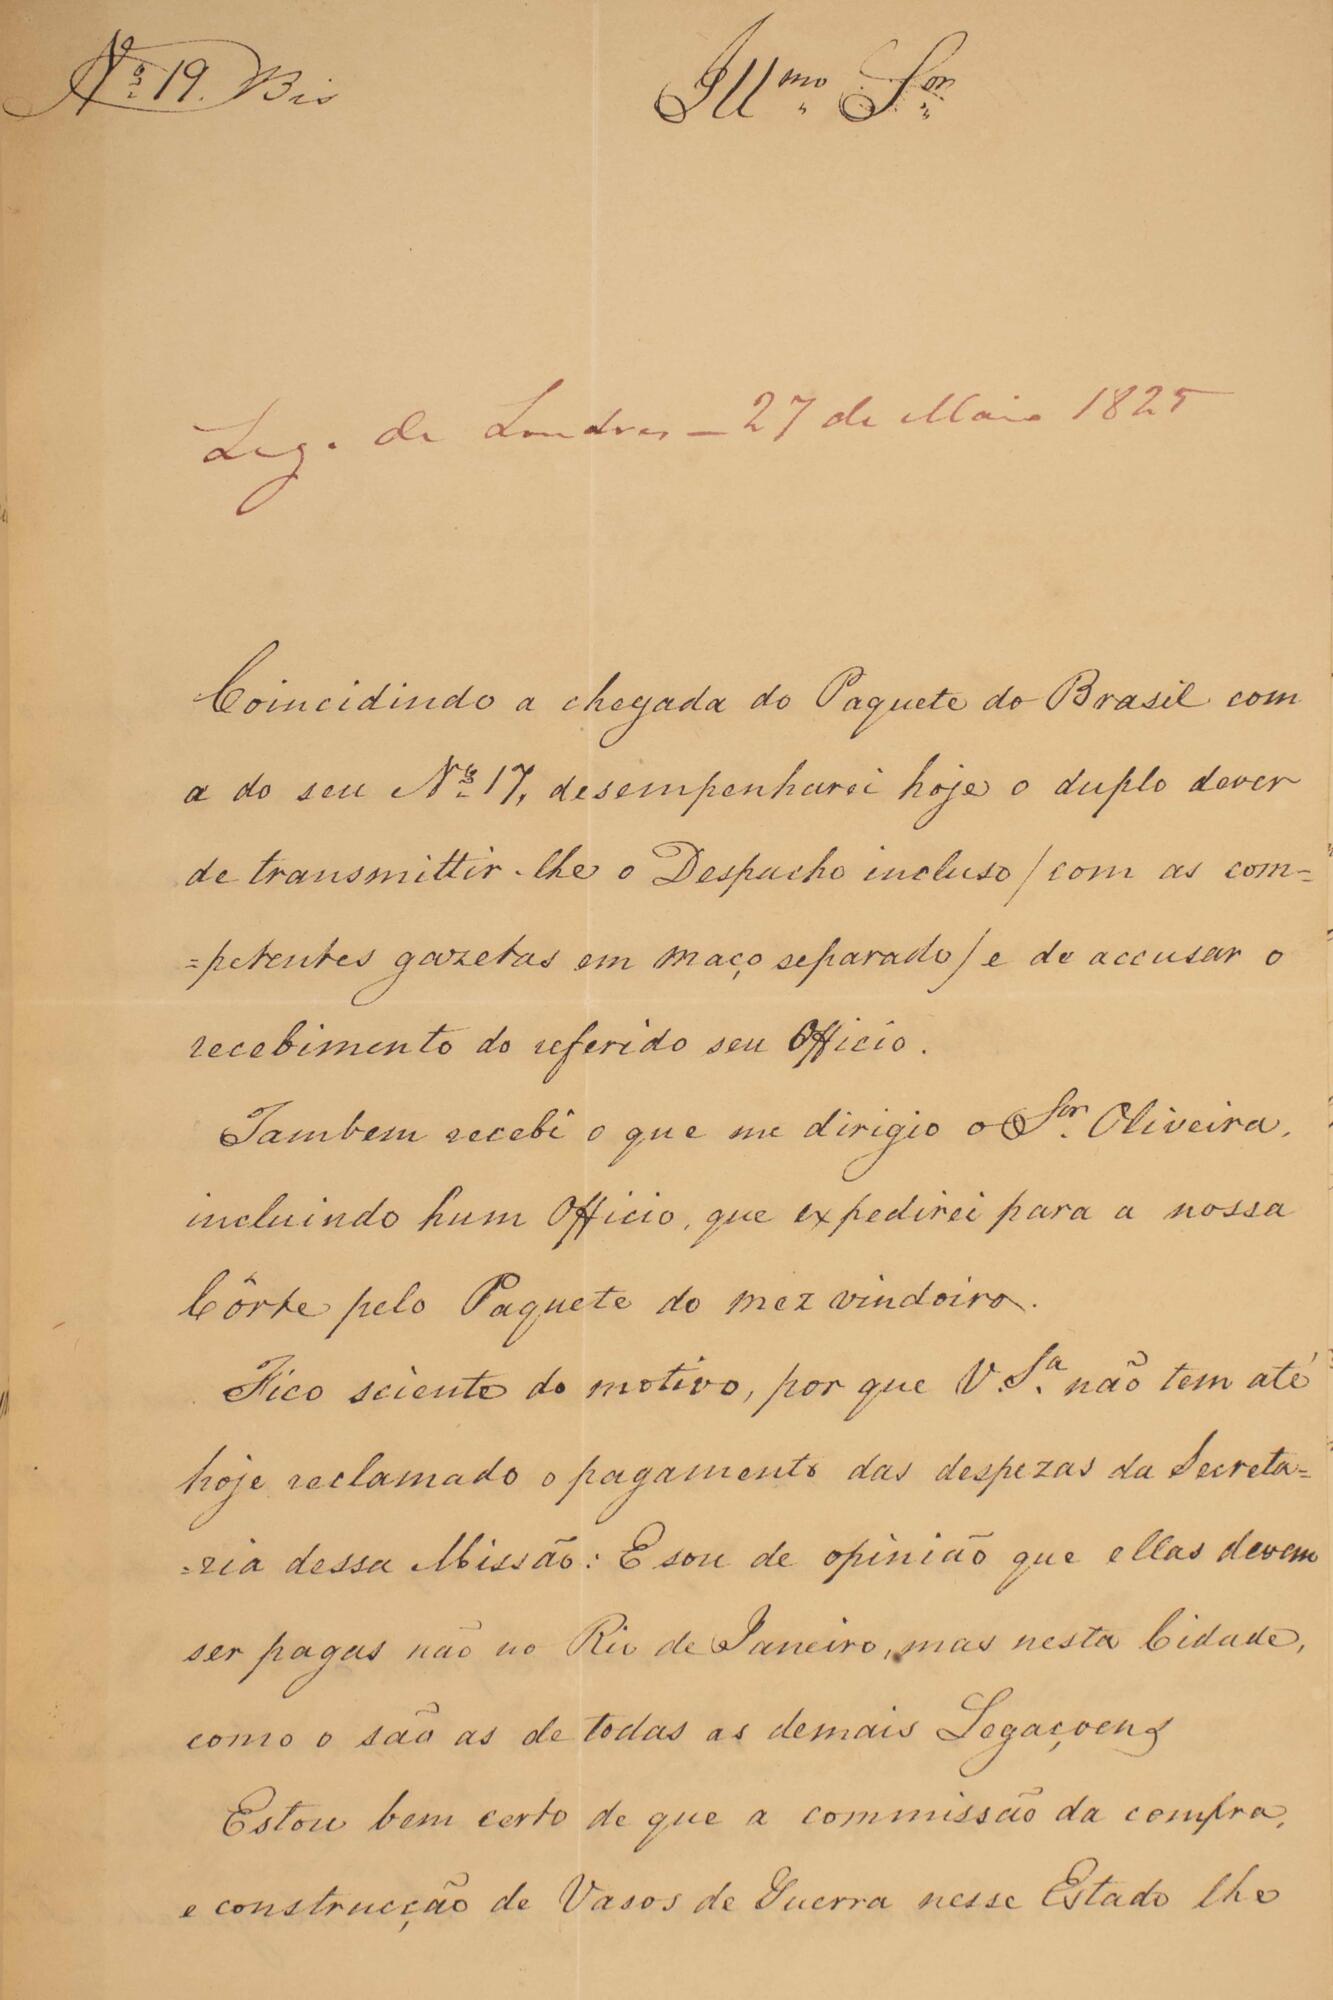 Nº 19. Bis
Illmo Sor
Leg. de Londres - 27 de Maio 1825
Coincidindo a chegada do Paquete do Brasil com
a do seu Nº 17, desempenharei hoje o duplo dever
de transmittir-lhe o Despacho incluso / com as com=
=petentes gazetas em maço separado / e de accusar o
recebimento do referido seu Officio.
Tambem recebi o que me dirigio o Sor. Oliveira,
incluindo hum Officio, que expedirei para a nossa
Côrte pelo Paquete do mez vindoiro.
Fico sciente do motivo, por que V. Sa. não tem até
hoje reclamado o pagamento das despezas da Secreta=
=ria dessa Missão: E sou de opinião que ellas devem
ser pagas não no Rio de Janeiro, mas nesta Cidade,
como o são as de todas as demais Legaçoens
Estou bem certo de que a commissão da compra,
e construcção de Vasos de Guerra nesse Estado lhe